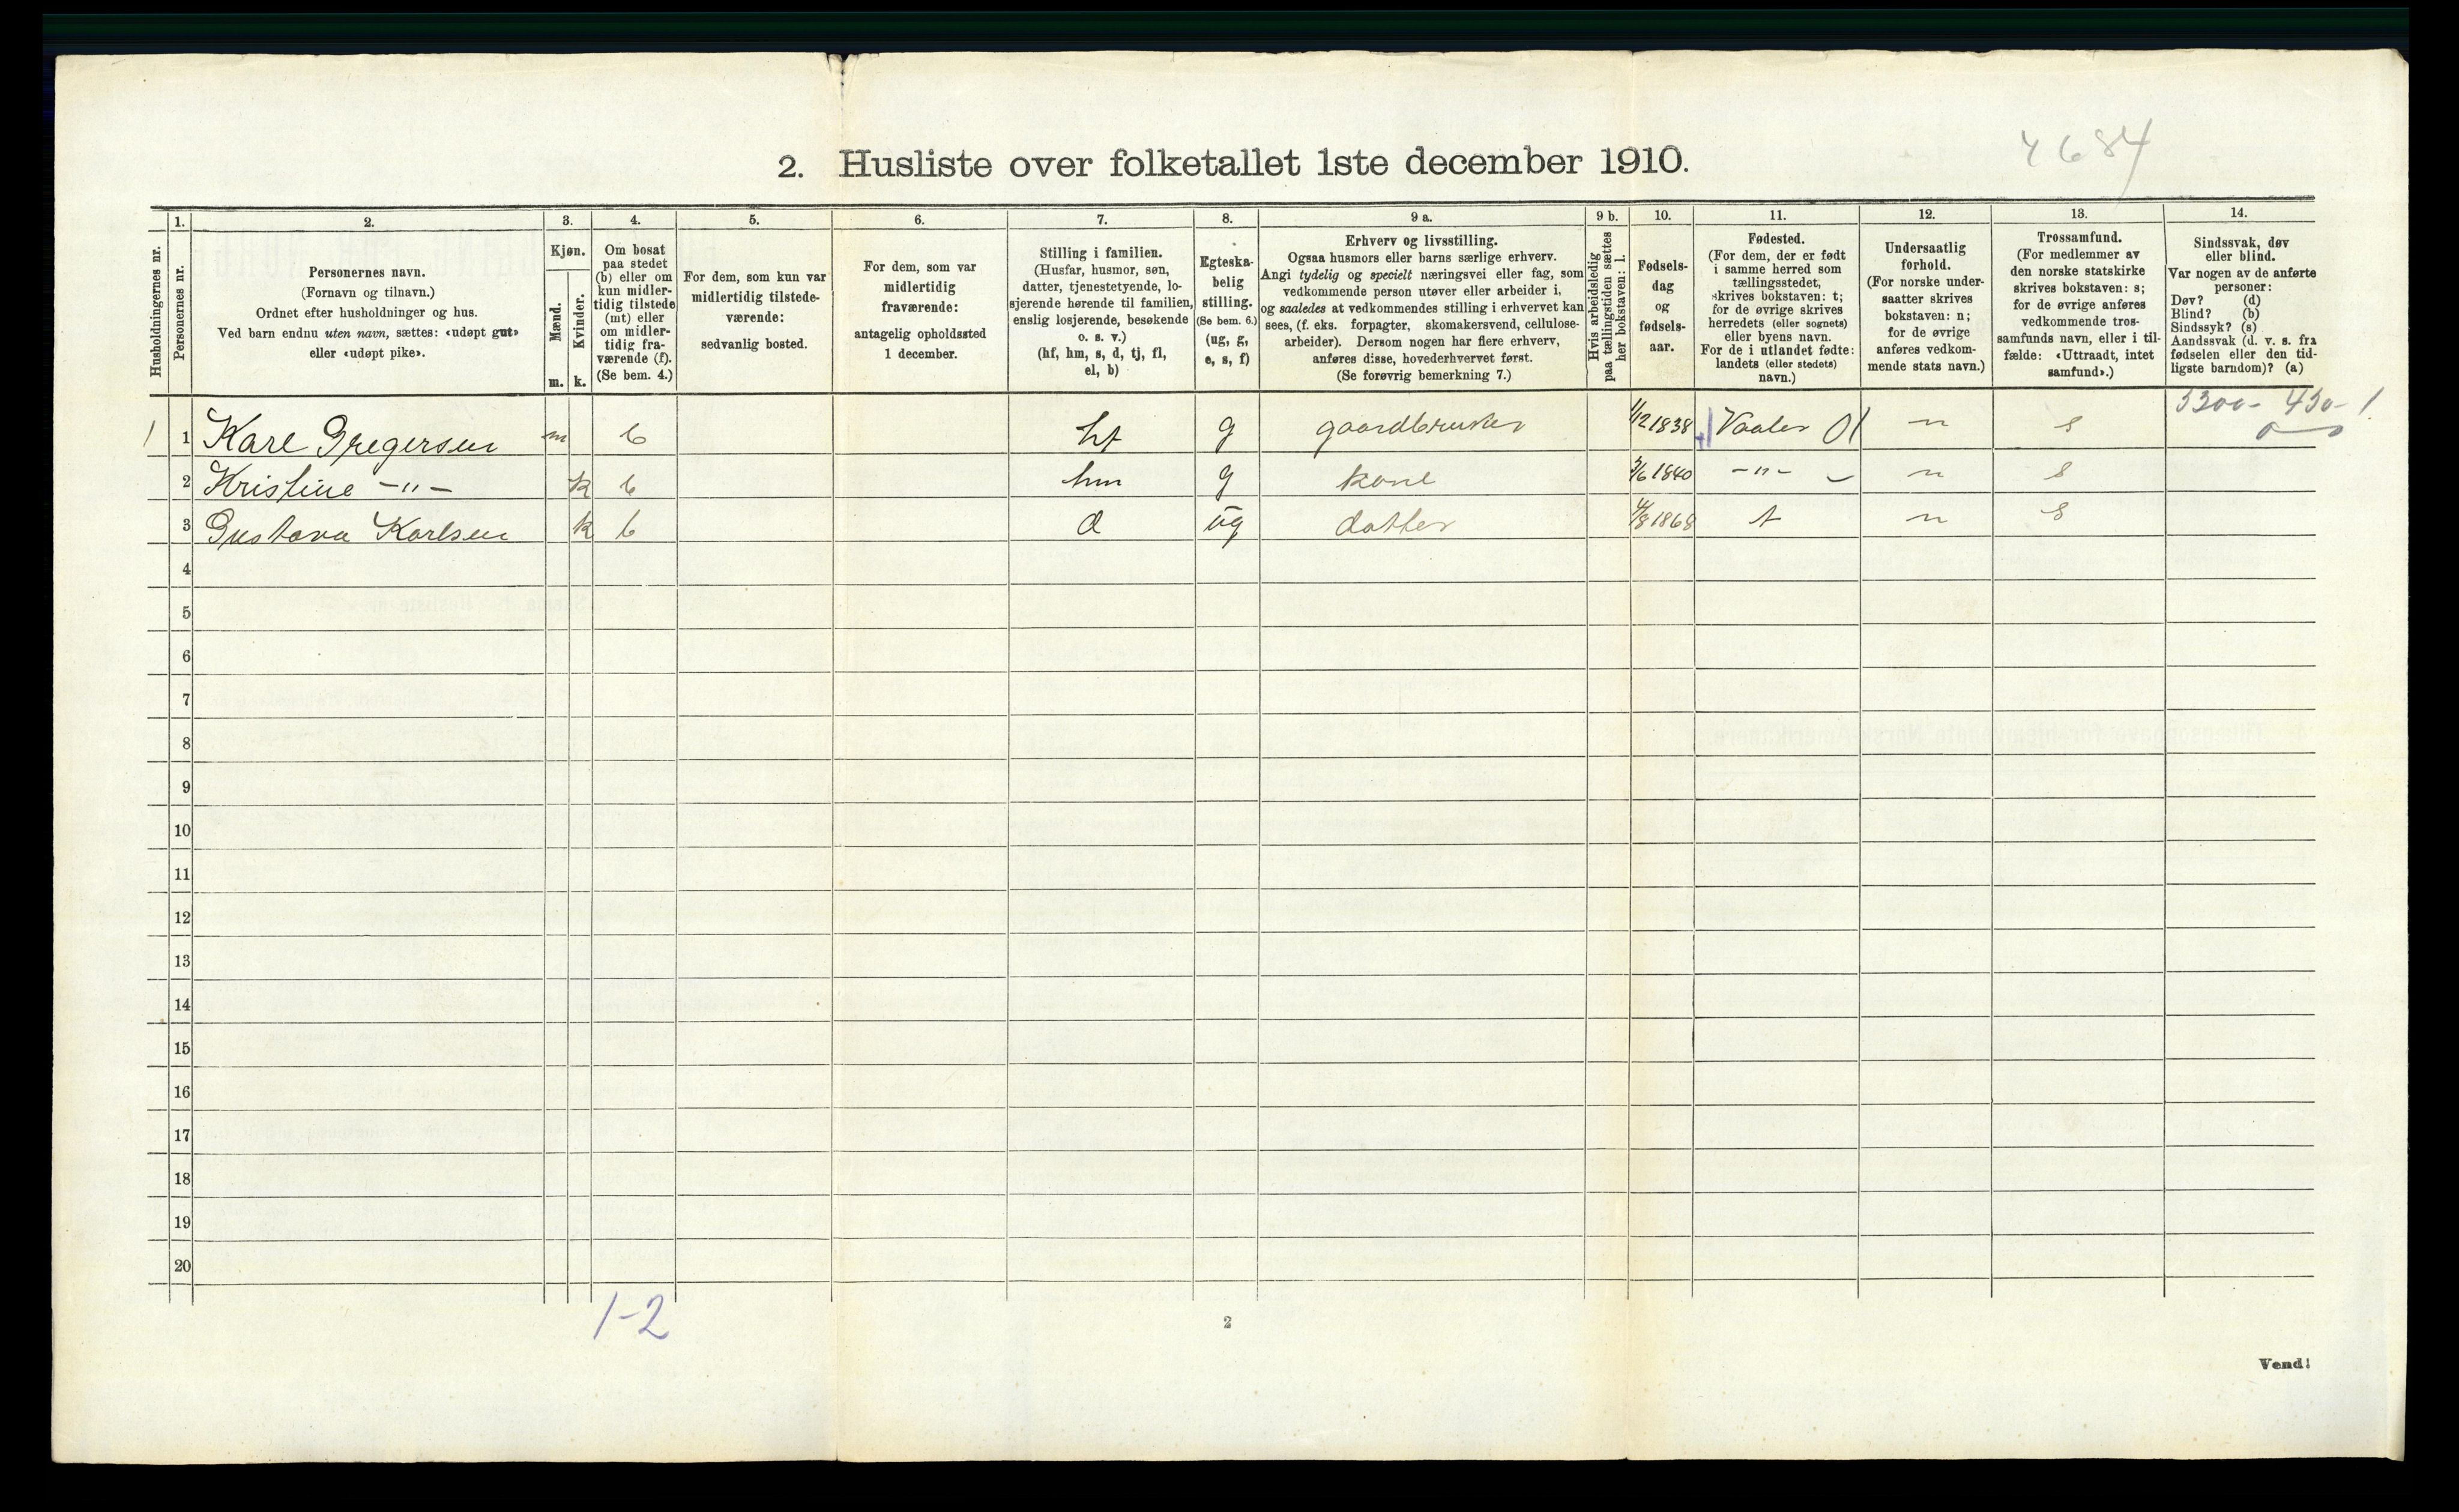 4684
2. Husliste over folketallet 1ste december 1910.
Husholdningernes nr.
1.
Personernes nr.
2.
Personernes navn.
(Fornavn og tilnavn.)
Ordnet efter husholdninger og hus.
Ved barn endnu uten navn, sættes: «udøpt gut»
eller «udøpt pike».
3.
Kjøn.
Mænd.
Kvinder.
m. k.
4.
Om bosat
paa stedet
(b) eller om
kun midler-
tidig tilstede
(mt) eller
om midler-
tidig fra-
værende (f).
(Se bem. 4.)
5.
For dem, som kun var
midlertidig tilstede-
værende:
sedvanlig bosted.
6.
For dem, som var
midlertidig
fraværende:
antagelig opholdssted
1 december.
7.
Stilling i familien.
(Husfar, husmor, søn,
datter, tjenestetyende, lo-
sjerende hørende til familien,
enslig losjerende, besøkende
o. s. v.)
(hf, hm, s, d, tj, fl,
el, b)
8.
Egteska-
belig
stilling.
(Se bem. 6.)
(ug, g,
e, s, f)
9 a.
Erhverv og livsstilling.
Ogsaa husmors eller barns særlige erhverv.
Angi tydelig og specielt næringsvei eller fag, som
vedkommende person utøver eller arbeider i,
og saaledes at vedkommendes stilling i erhvervet kan
sees, (f. eks. forpagter, skomakersvend, cellulose-
arbeider). Dersom nogen har flere erhverv,
anføres disse, hovederhvervet først.
(Se forøvrig bemerkning 7.)
9 b.
Hvis arbeidsledig
paa tællingstiden sættes
her bokstaven: l.
10.
Fødsels-
dag
og
fødsels-
aar.
11.
Fødested.
(For dem, der er født
i samme herred som
tællingsstedet,
skrives bokstaven: t;
for de øvrige skrives
herredets (eller sognets)
eller byens navn.
For de i utlandet fødte:
landets (eller stedets)
navn.)
12.
Undersaatlig
forhold.
(For norske under-
saatter skrives
bokstaven: n;
for de øvrige
anføres vedkom-
mende stats navn.)
13.
Trossamfund.
(For medlemmer av
den norske statskirke
skrives bokstaven: s;
for de øvrige anføres
vedkommende tros-
samfunds navn, eller i til-
fælde: «Uttraadt, intet
samfund».)
14.
Sindssvak, døv
eller blind.
Var nogen av de anførte
personer:
Døv? (d)
Blind? (b)
Sindssyk? (s)
Aandssvak (d. v. s. fra
fødselen eller den tid-
ligste barndom)? (a)
1 1 Karl Gregersen m b hf g gaardbruker 1/12 1838 Vaaler n s
2 Kristine -"- k b hm g kone 1840 -"- n s
3 Gustava Karlsen k b d ug datter 4/8 1868 t n s
4
5
6
7
8
9
10
11
12
13
14
15
16
17
18
19
20
1-2
2
Vend!